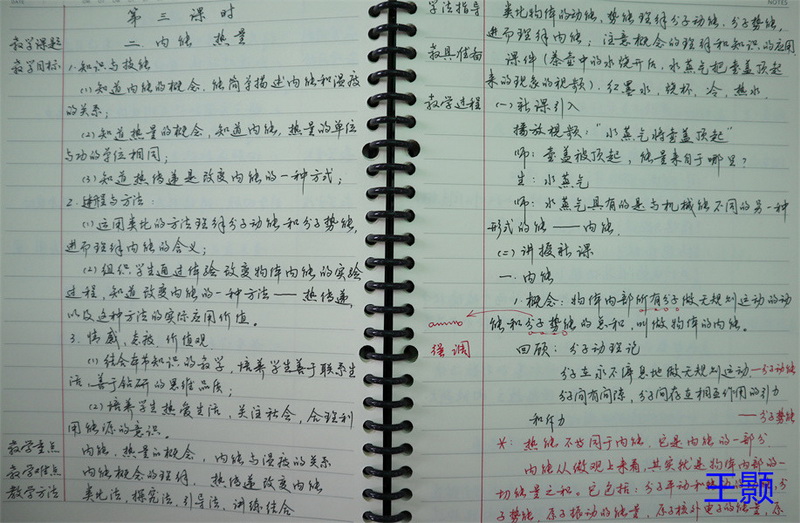 第三课时
教学课题 二、内能 热量
教学目标 1.知识与技能
(1)知道内能的概念,能简单描述内能和温度
的关系;
(2)知道热量的概念,知道内能、热量的单位
与功的单位相同;
(3)知道热传递是改变内能的一种方式;
2.过程与方法:
(1)运用类比的方法理解分子动能和分子势能,
进而理解内能的含义;
(2)组织学生通过体验改变物体内能的实验
过程,知道改变内能的一种方法——热传递,
以及这种方法的实际应用价值。
3.情感、态度、价值观
(1)结合本节知识的教学,培养学生善于联系生
活、善于钻研的思维品质;
(2)培养学生热爱生活,关注社会,合理利
用能源的意识。
教学重点 内能、热量的概念,内能与温度的关系
教学难点 内能概念的理解,热传递改变内能
教学方法 类比法、探究法、引导法、讲练结合
NOTES
学法指导 类比物体的动能、势能理解分子动能、分子势能,
进而理解内能;注意概念的理解和知识的应用
教具准备 课件(茶壶中的水烧开后,水蒸气把壶盖顶起
来的现象的视频)、红墨水、烧杯、冷、热水
教学过程 (一)新课引入
播放视频:“水蒸气将壶盖顶起”
师:壶盖被顶起,能量来自于哪里?
生:水蒸气
师:水蒸气具有的是与机械能不同的另一种
形式的能——内能.
(二)讲授新课
一.内能
1.概念:物体内部所有分子做无规则运动的动
能和分子势能的总和,叫做物体的内能。
强调 回顾:分子动理论
分子在永不停息地做无规则运动—分子动能
分子间有间隙,分子间存在相互作用的引力
和斥力 —分子势能
*:热能不等同于内能,它是内能的一部分
内能从微观上来看,其实就是物体内部的一
切能量之和。它包括:分子平动和
子势能、原子振动的能量、原子核外电子的能量、原
王颢